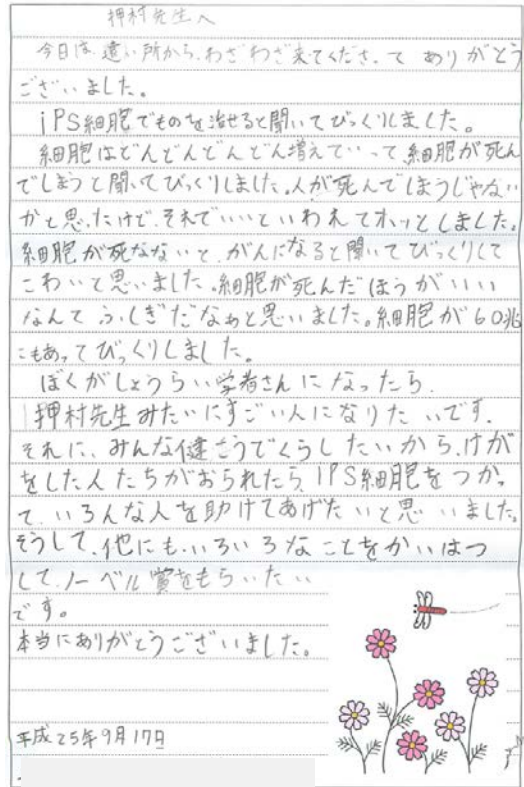 押村先生へ
今日は、遠い所から、わざわざ来てくださって ありがとう
ございました。
iPS細胞でものを治せると聞いてびっくりしました。
細胞はどんどんどんどん増えていって細胞が死ん
でしまうと聞いてびっくりしました。人が死んでしまうじゃない
かと思ったけど、それでいいといわれてホッとしました。
細胞が死なないと、がんになると聞いてびっくりして
こわいと思いました。細胞が死んだほうがいい
なんて ふしぎだなぁと思いました。細胞が60兆
こもあってびっくりしました。
ぼくがしょうらい学者さんになったら、
押村先生みたいにすごい人になりたいです。
それに、みんな健こうでくらしたいから、けが
をした人たちがおられたら、iPS細胞をつかっ
て、いろんな人を助けてあげたいと思いました。
そうして、他にも、いろいろなことをかいはつ
して、ノーベル賞をもらいたい
です。
本当にありがとうございました。
平成25年9月17日